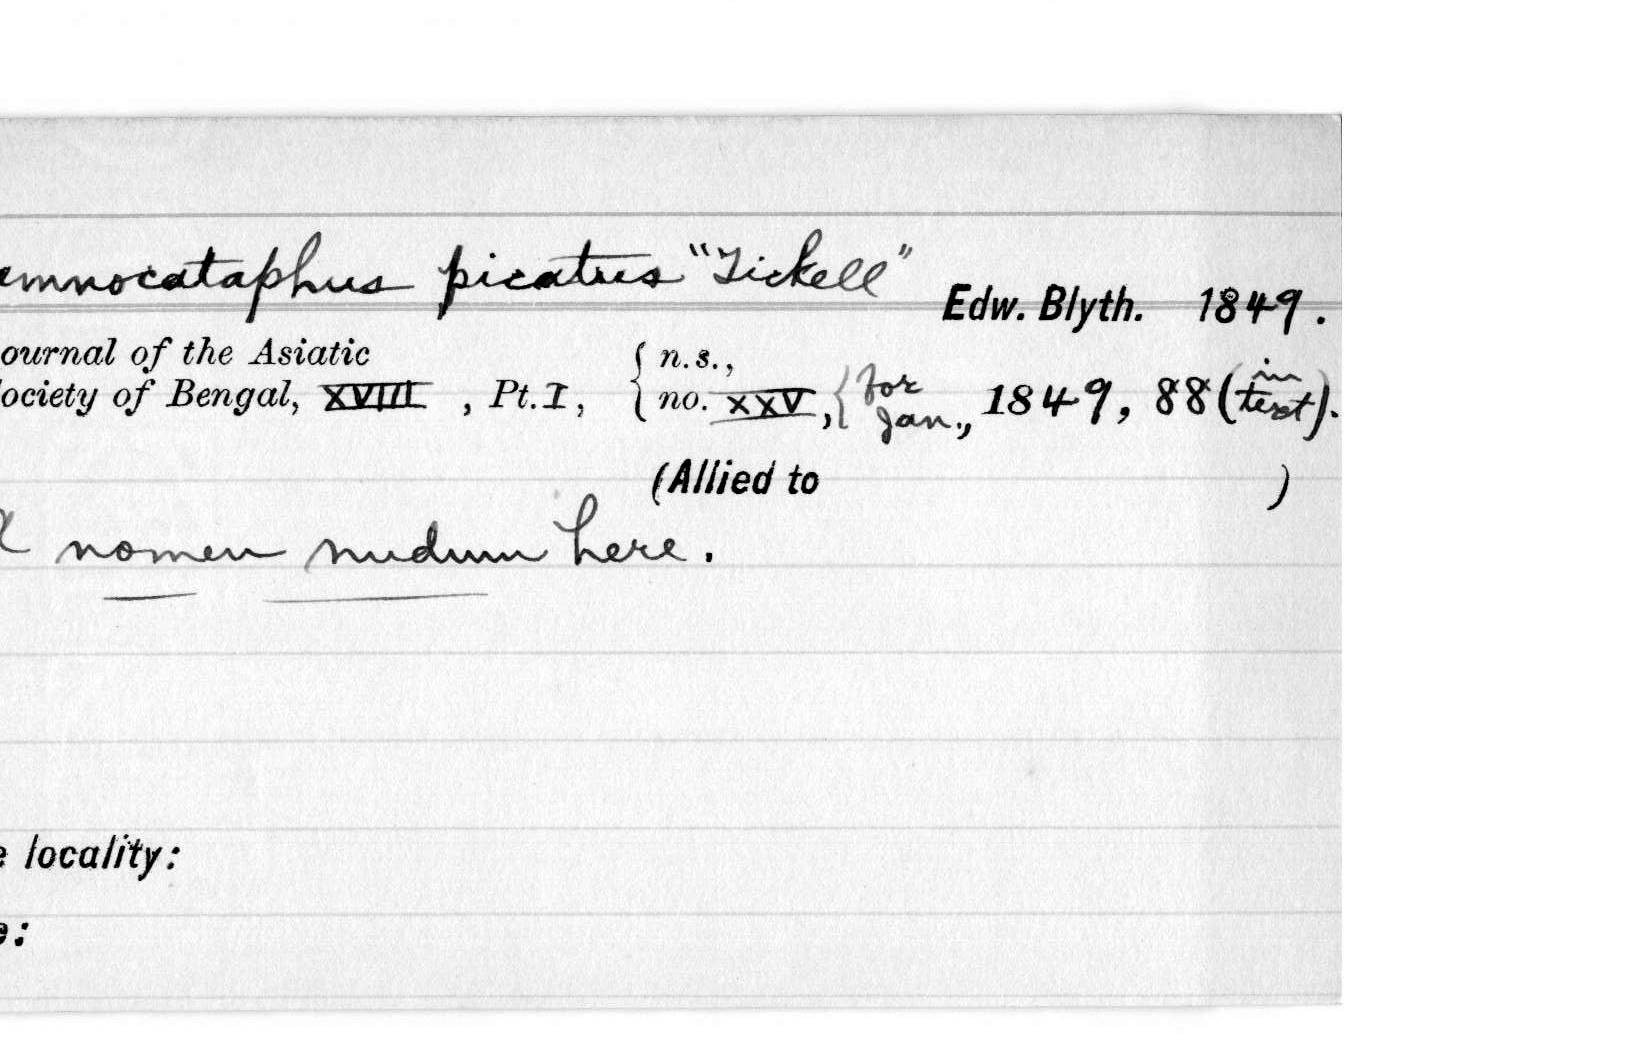 emnocataphus picatus "Tickell"
Edw. Blyth. 1849.
ournal of the Asiatic { n.s.,
ociety of Bengal, XVIII , Pt. I, { no. XXV, { for Jan., 1849, 88 (in text).
(Allied to )
A nomen nudum here.
e locality:
e: